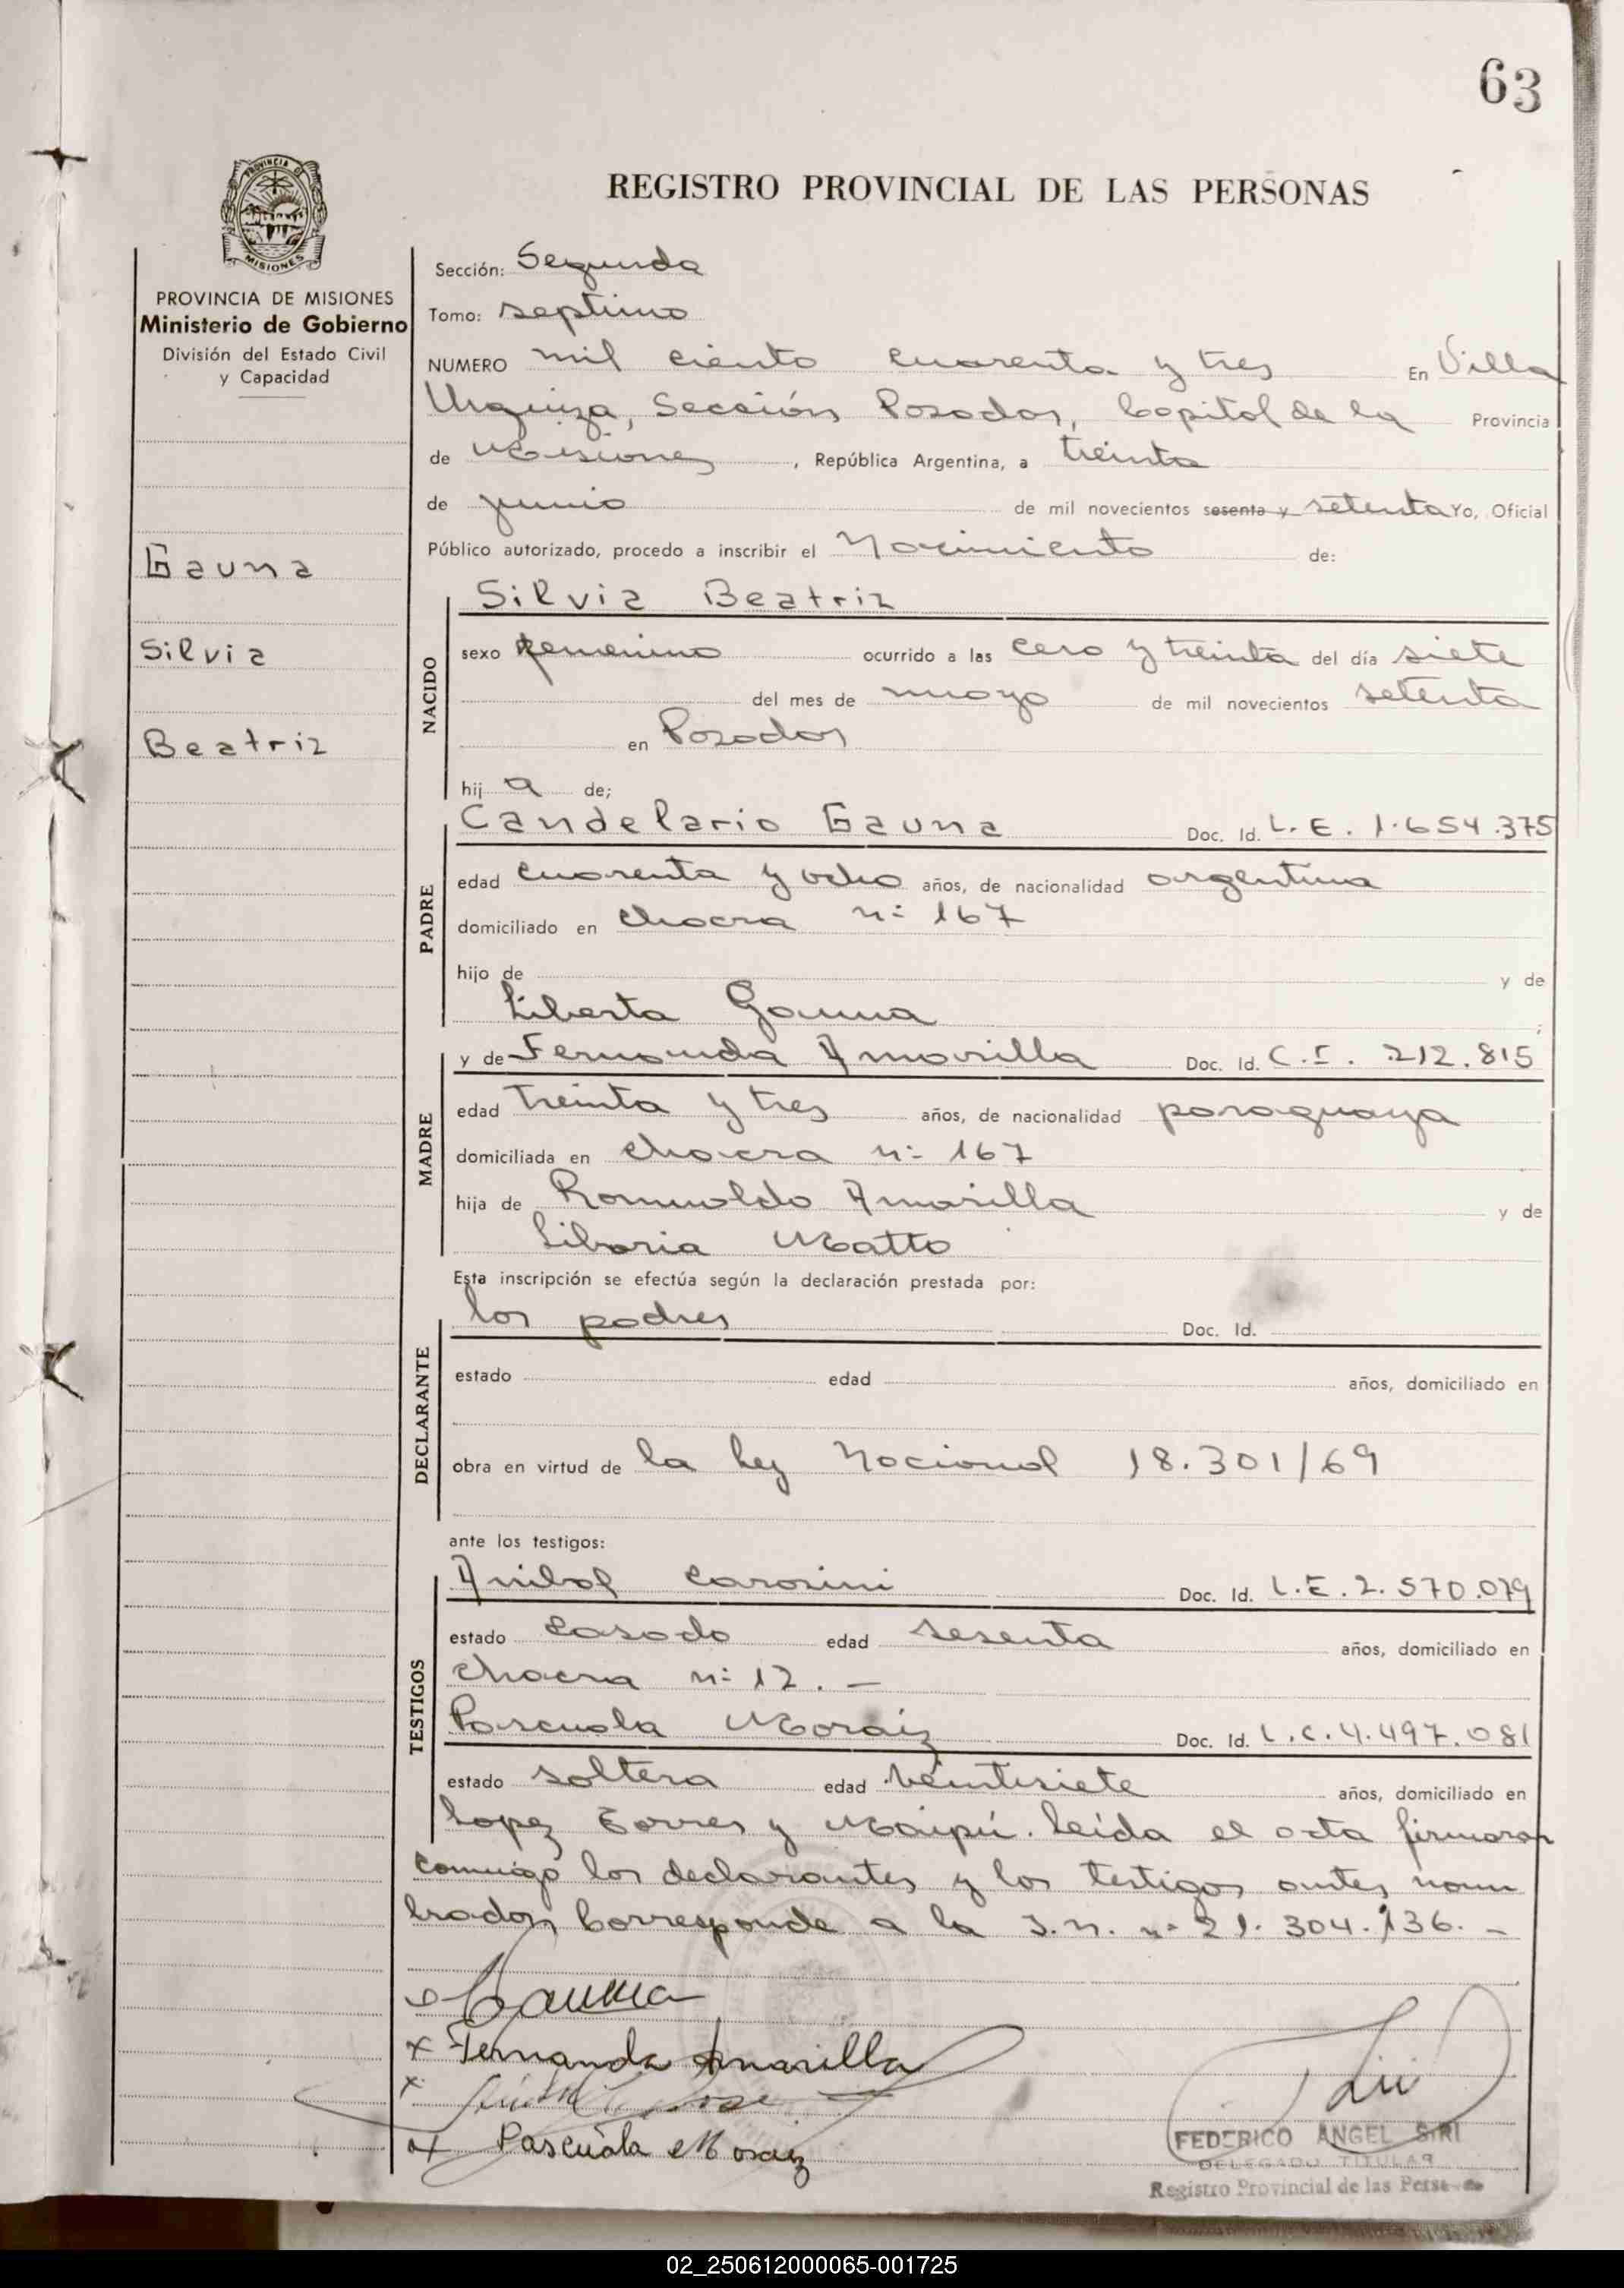 63
PROVINCIA DE
MISIONES
REGISTRO PROVINCIAL DE LAS PERSONAS
PROVINCIA DE MISIONES
Ministerio de Gobierno
División del Estado Civil
y Capacidad
Gauna
Silvia
Beatriz
Sección: Segunda
Tomo: septimo
NUMERO mil ciento cuarenta y tres En Villa
Urquiza, Sección Posadas, Capital de la Provincia
de Misiones, República Argentina, a treinta
de junio de mil novecientos sesenta y setenta Yo, Oficial
Público autorizado, procedo a inscribir el Nacimiento de:
NACIDO
Silvia Beatriz
sexo femenino ocurrido a las cero y treinta del día siete
del mes de mayo de mil novecientos setenta
en Posadas
hij a de;
PADRE
Candelario Gauna Doc. Id. L. E. 1.654.375
edad cuarenta y ocho años, de nacionalidad argentina
domiciliado en chacra n: 167
hijo de y de
Liberta Gauna
MADRE
y de Fernanda Amarilla Doc. Id. C. I. 212.815
edad treinta y tres años, de nacionalidad paraguaya
domiciliada en chacra n: 167
hija de Romualdo Amarilla y de
Liboria Matto
Esta inscripción se efectúa según la declaración prestada por:
DECLARANTE
los padres Doc. Id.
estado edad años, domiciliado en
obra en virtud de la Ley Nacional 18.301/69
ante los testigos:
TESTIGOS
Anibal Carosini Doc. Id. L.E. 2.570.079
estado Casado edad sesenta años, domiciliado en
chacra n: 12. –
Pascuala Moraiz Doc. Id. L.C. 4.497.081
estado soltera edad veintisiete años, domiciliado en
Lopez Torres y Maipú. Leída el acta firmaran
conmigo los declarantes y los testigos antes nom
brados, Corresponde a la I.N. n: 21.304.136. –
x Gauna
x Fernanda Amarilla
x
x Pascuala Moraiz
FEDERICO ANGEL SIRI
DELEGADO TITULAR
Registro Provincial de las Personas
02_250612000065-001725